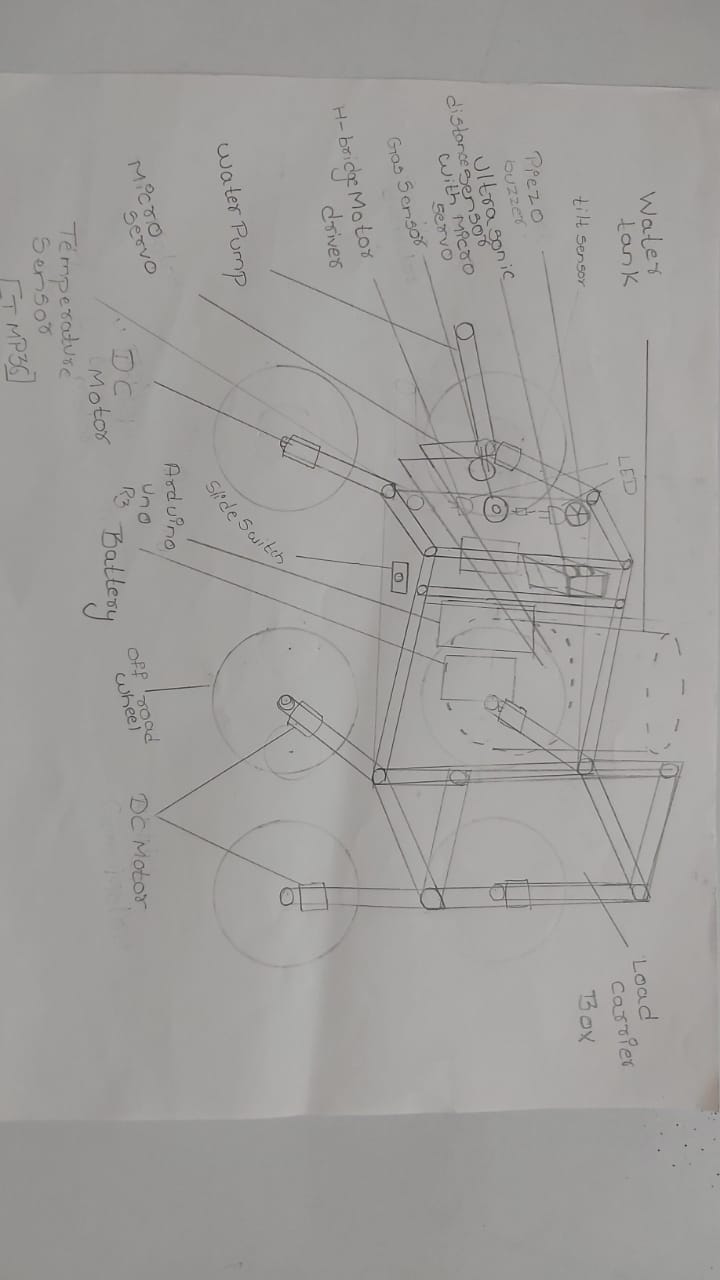 Water
tank
tilt sensor
Piezo
buzzer
Ultra sonic
distance sensor
with Micro
servo
Gas Sensor
H-bridge Motor
driver
Water Pump
Micro
servo
Temperature
Sensor
[TMP36]
DC
Motor
LED
Slide Switch
Arduino
uno
R3
Battery
Off road
wheel
DC Motor
Load
carrier
Box